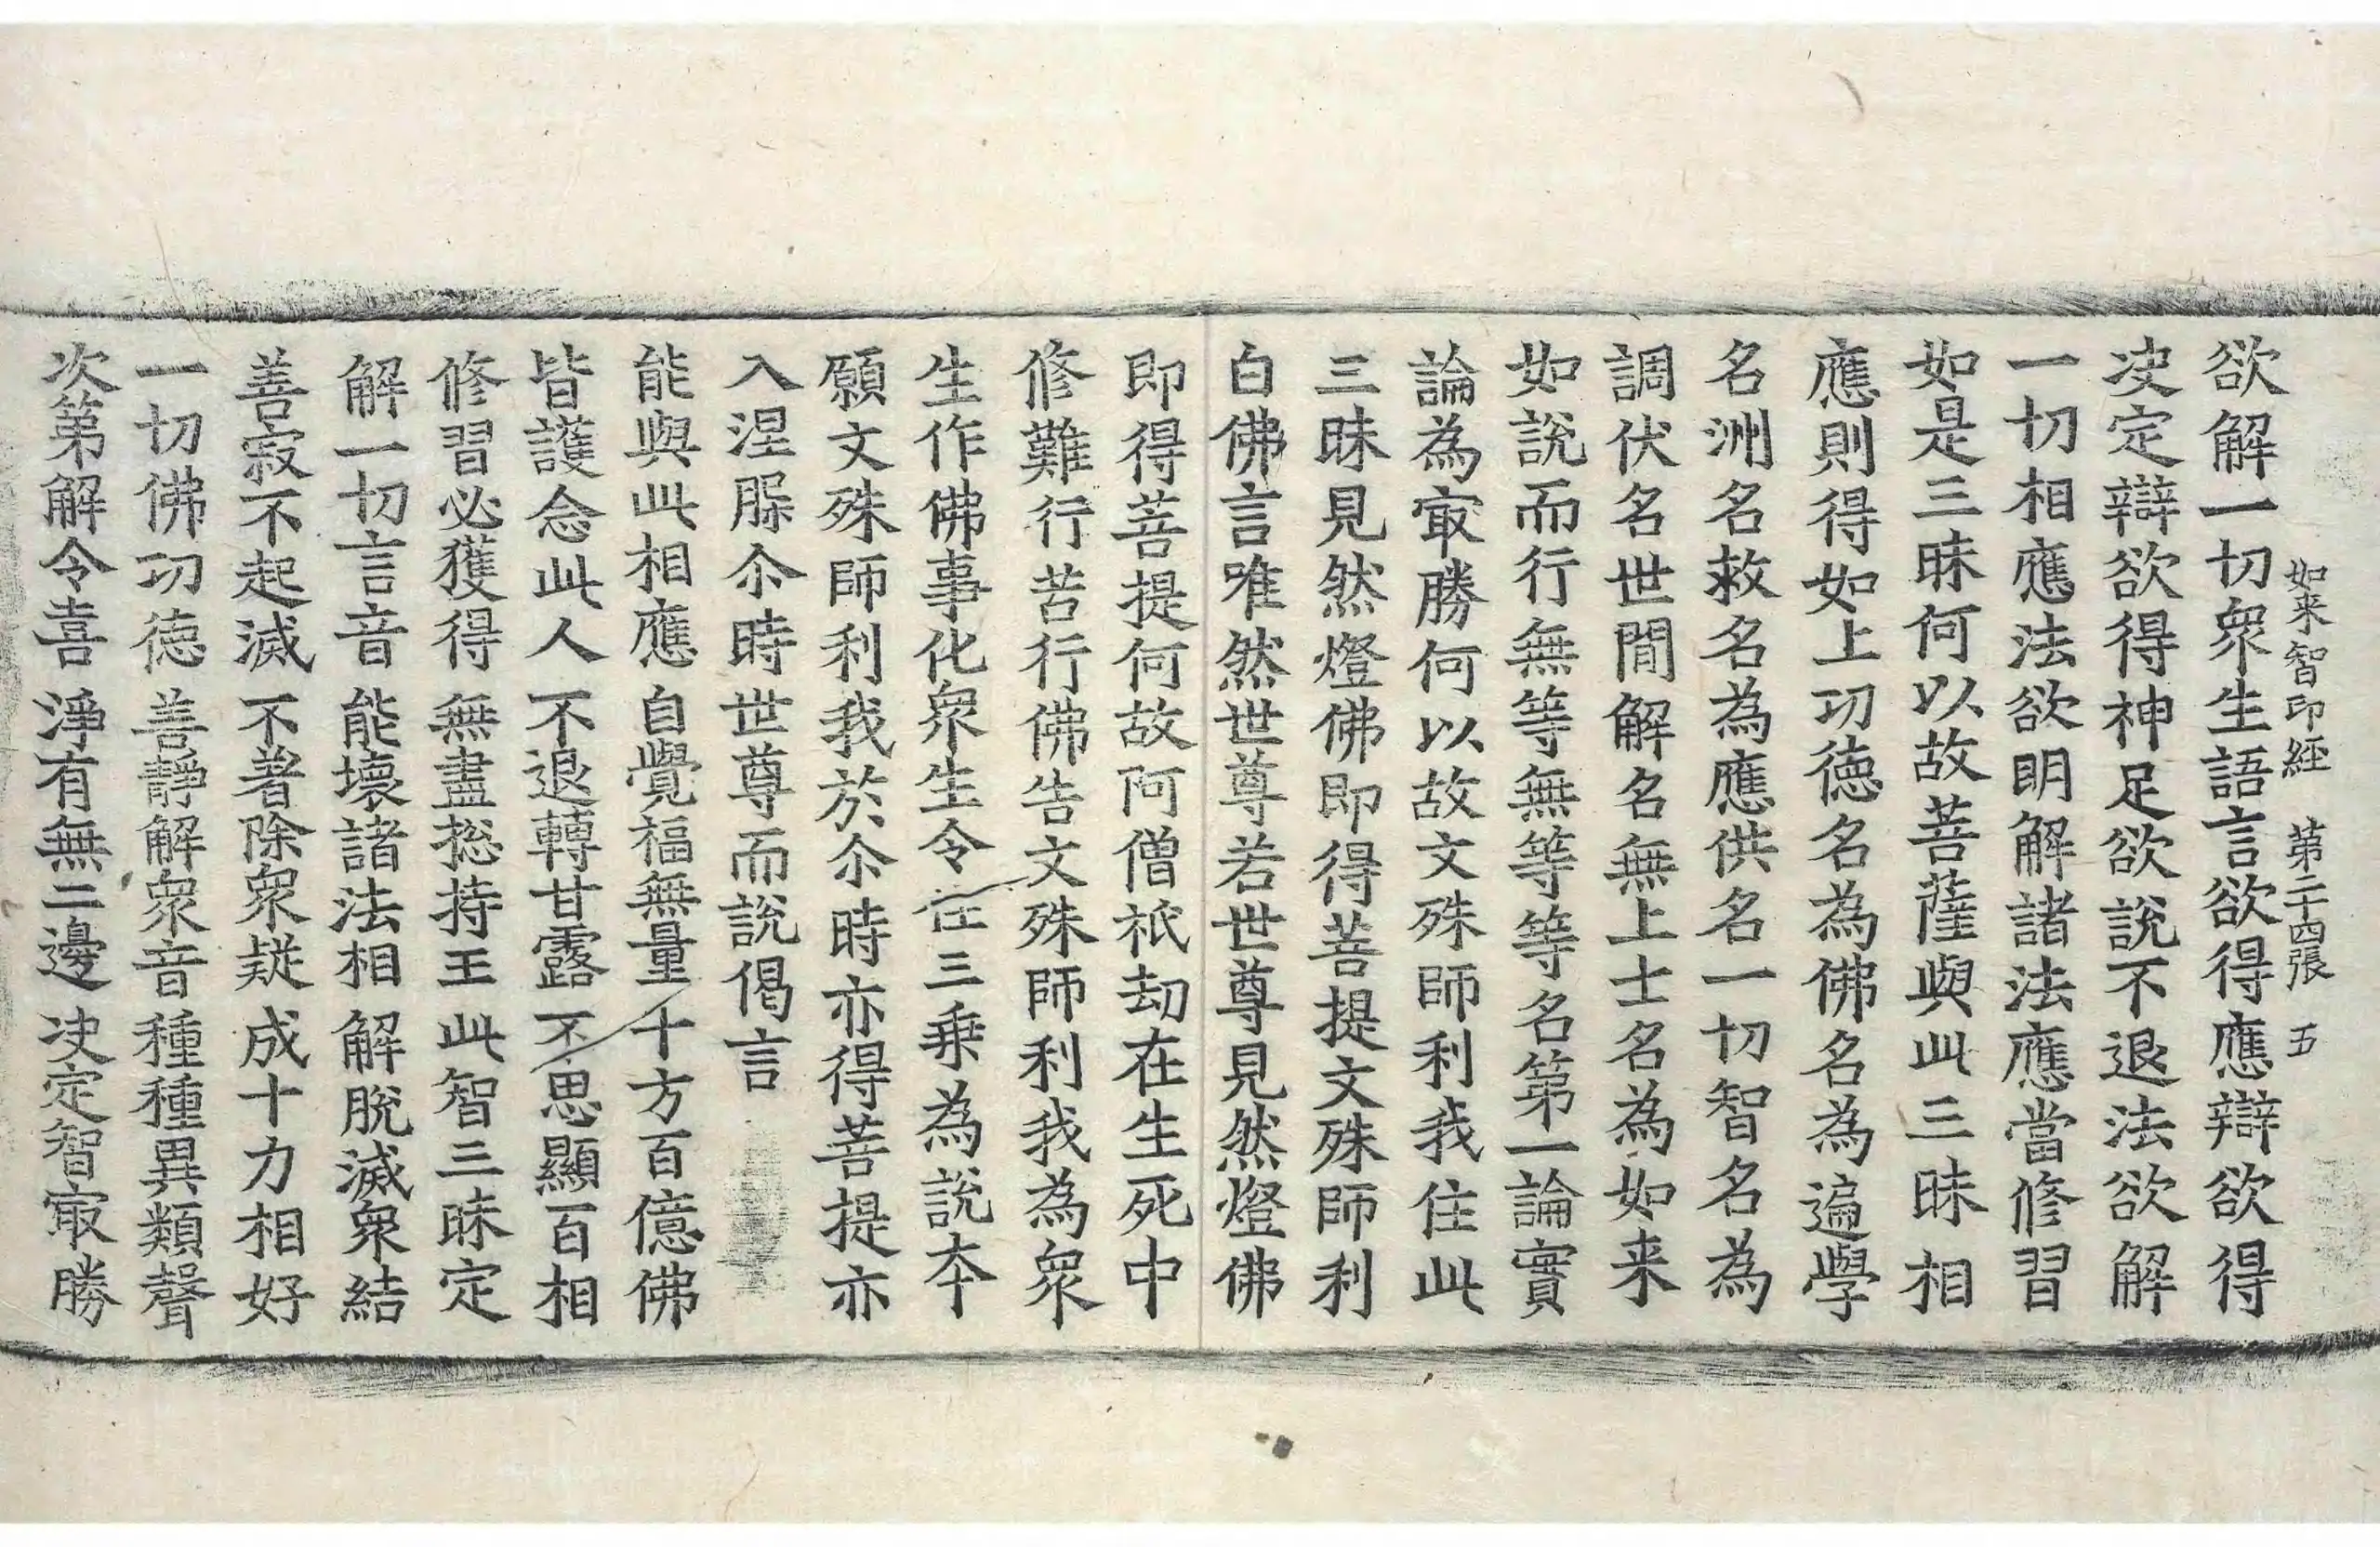 如来智印經 第二十四張 五
欲解一切衆生語言欲得應辯欲得
决定辯欲得神足欲說不退法欲解
一切相應法欲明解諸法應當修習
如是三昧何以故菩薩與此三昧相
應則得如上功德名為佛名為遍學
名洲名救名為應供名一切智名為
調伏名世間解名無上士名為如来
如說而行無等無等等名第一論實
論為㝡勝何以故文殊師利我住此
三昧見然燈佛即得菩提文殊師利
白佛言唯然世尊若世尊見然燈佛
即得菩提何故阿僧祇劫在生死中
修難行苦行佛告文殊師利我為衆
生作佛事化衆生令住三乗為說夲
願文殊師利我於尒時亦得菩提亦
入涅槃尒時世尊而說偈言
能與此相應 自覺福無量 十方百億佛
皆護念此人 不退轉甘露 不思顯百相
修習必獲得 無盡捴持王 此智三昧定
解一切言音 能壞諸法相 解脫滅衆結
善寂不起滅 不著除衆疑 成十力相好
一切佛功德 善靜解衆音 種種異類聲
次第解令喜 淨有無二邊 决定智㝡勝